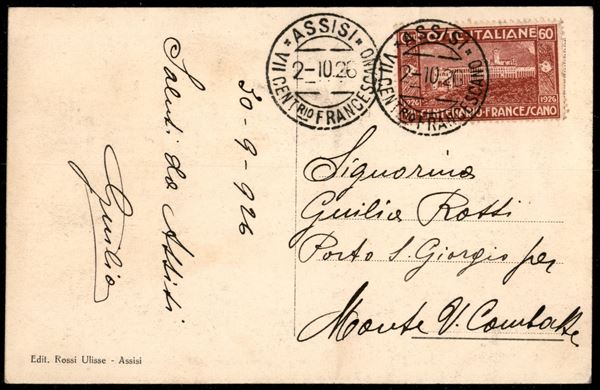 ASSISI
VII CENTRIO FRANCESCANO
2-10.26
ASSISI
VII CENTRIO FRANCESCANO
2-10.26
60 POSTE ITALIANE 60
1226 1926
VII CENTENARIO FRANCESCANO
30-9-926
Saluti da Assisi
Giulio
Signorina
Giulia Rotti
Porto S. Giorgio per
Monte V. Combatte
Edit. Rossi Ulisse - Assisi